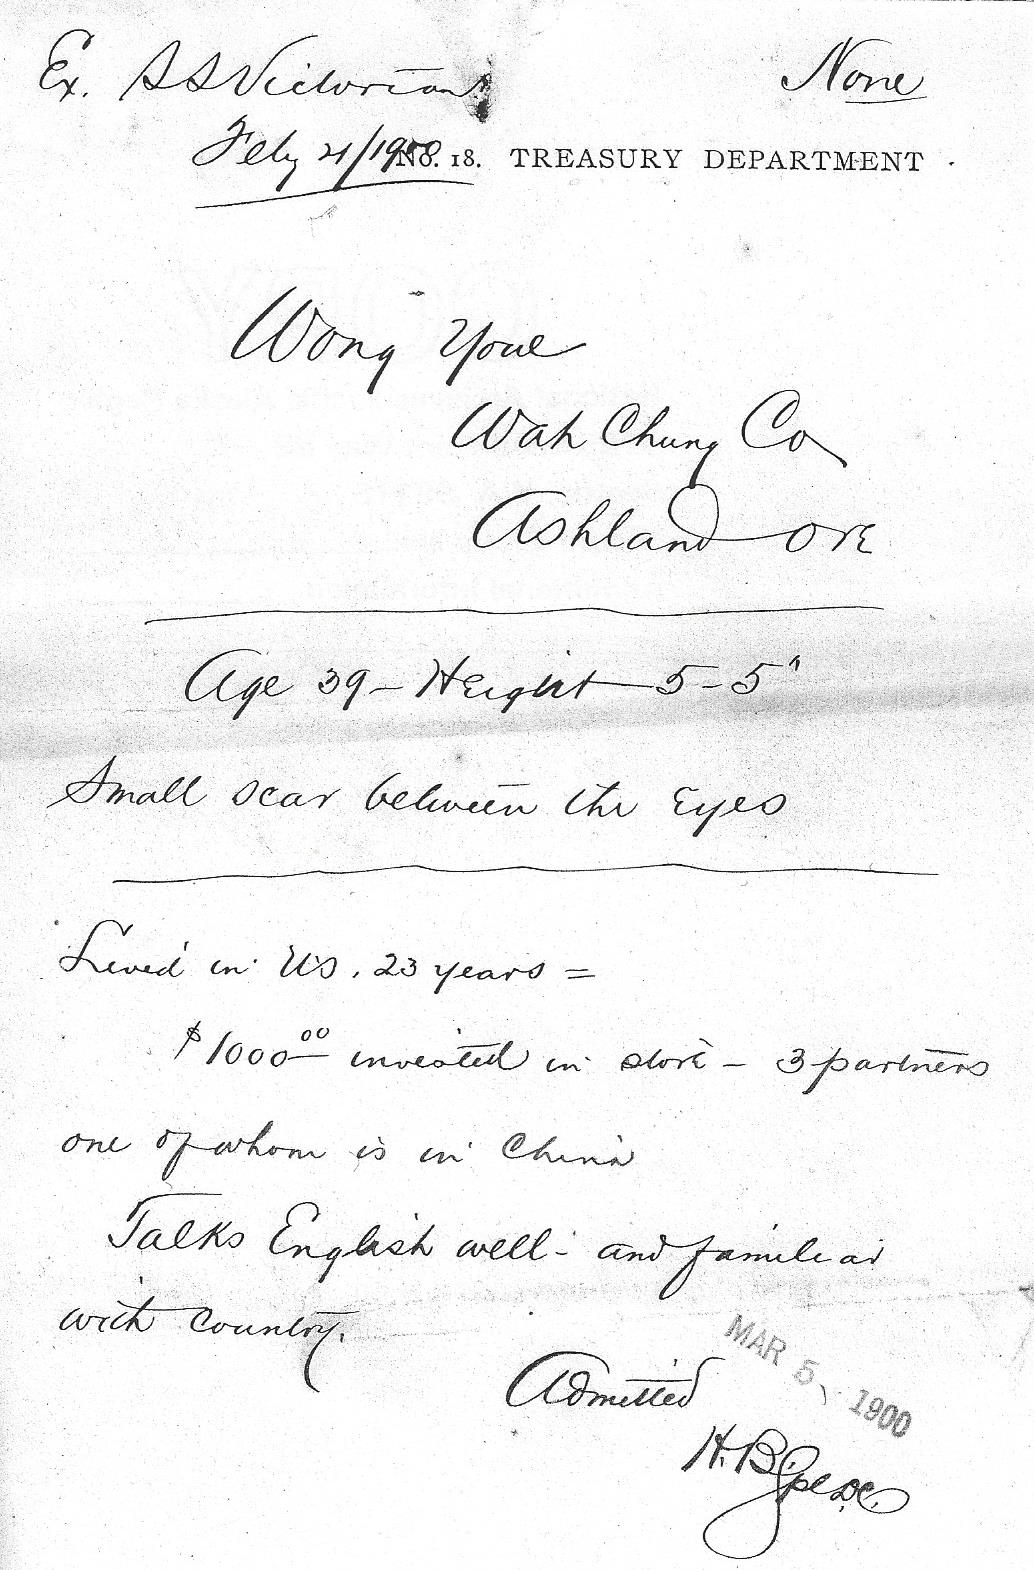 Ex. SS Victorian
None
Feby 21/1900
No. 18. TREASURY DEPARTMENT
Wong Youe
Wah Chung Co
Ashland Ore
Age 39 - Height - 5 - 5"
Small scar between the Eyes
Lived in US. 23 years =
$1000.00 invested in store - 3 partners
one of whom is in China
Talks English well - and familiar
with country.
Admitted
MAR 5, 1900
H. B.